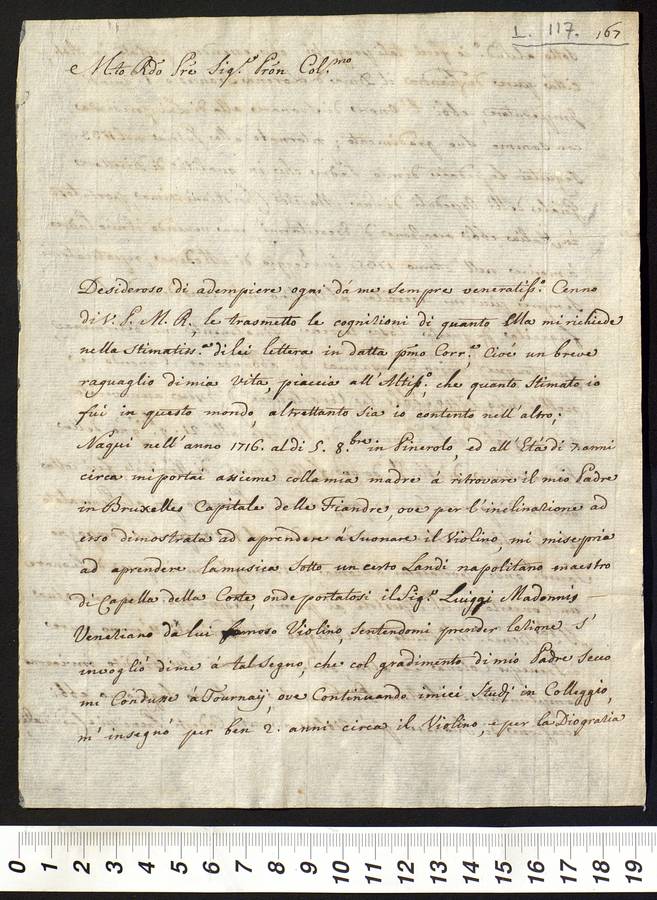 L. 117. 167
M.to Rdo Pré Sig.r Prón Col.mo
Desideroso di adempiere ogni dá me sempre veneratiss.o Cenno
di V. S. M. R., le trasmetto le cognizioni di quanto Ella mi richiede
nella stimatiss.a di lei lettera in datta pmo Corr.e, Cioé un breve
raguaglio di mia vita, piaccia all'Altiss.o, che quanto stimato io
fui in questo mondo, altrettanto sia io contento nell'altro;
Naqui nell'anno 1716. al di 5. 8.bre in Pinerolo, ed all'Etá di 7. anni
circa mi portai assieme colla mia madre á ritrovare il mio Padre
in Bruxelles Capitale delle Fiandre, ove per l'inclinazione ad
esso dimostrata ad aprendere á suonare il Violino, mi mise pria
ad aprendere la musica sotto un certo Landi napolitano maestro
di Capella della Corte, onde portatosi il Sig.r Luiggi Madonnis
Veneziano dá lui famoso Violino, sentendomi prender lezione s'
invoglió di me á tal segno, che col gradimento di mio Padre seco
mi Condusse á Tournaij, ove Continuando i miei studj in Colleggio,
m'insegnó per ben 2. anni circa il Violino, e per la Dio grazia
0 1 2 3 4 5 6 7 8 9 10 11 12 13 14 15 16 17 18 19